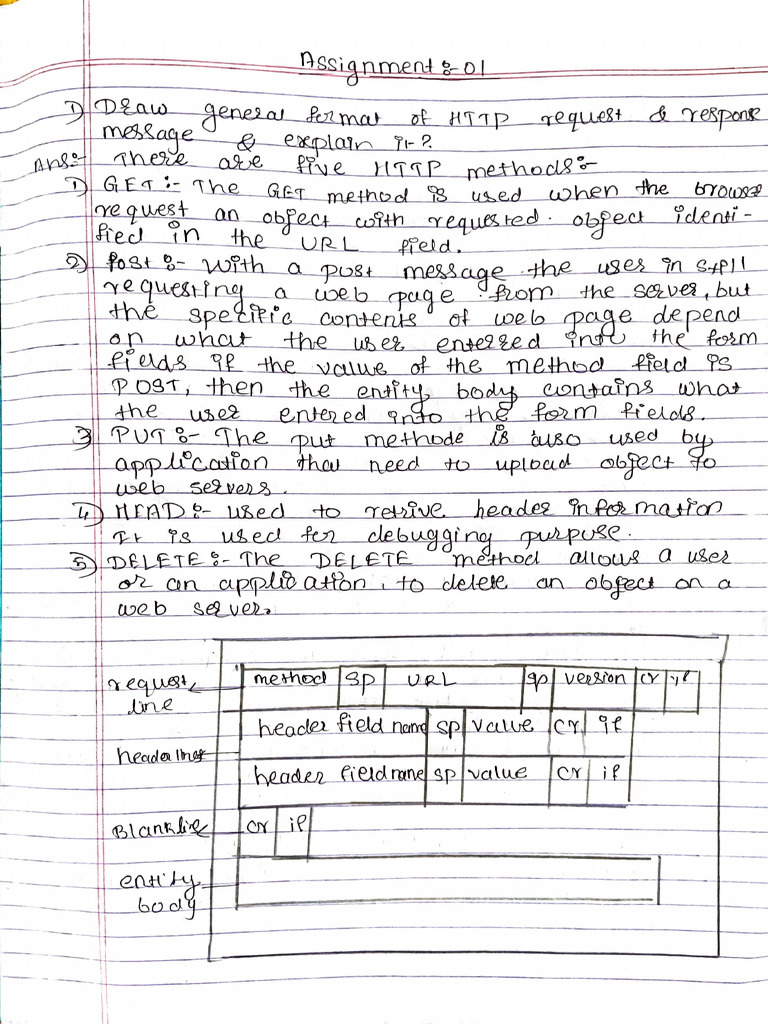 Assignment :- 01
1) Draw general format of HTTP request & response
message & explain it ?
Ans:- There are five HTTP methods :-
1) GET :- The GET method is used when the browse
request an object with requested. object identi-
fied in the URL field.
2) Post :- With a post message the user in still
requesting a web page from the server, but
the specific contents of web page depend
on what the user enterred into the form
fields if the value of the method field is
POST, then the entity body contains what
the user entered into the form fields.
3) PUT :- The put methode is also used by
application that need to upload object to
web servers.
4) HEAD :- used to retrive header information
It is used for debugging purpose.
5) DELETE :- The DELETE method allows a user
or an application, to delete an object on a
web server.
request line method sp URL sp version cr lf
header lines header field name sp value cr lf
header field name sp value cr lf
Blank line cr lf
entity body